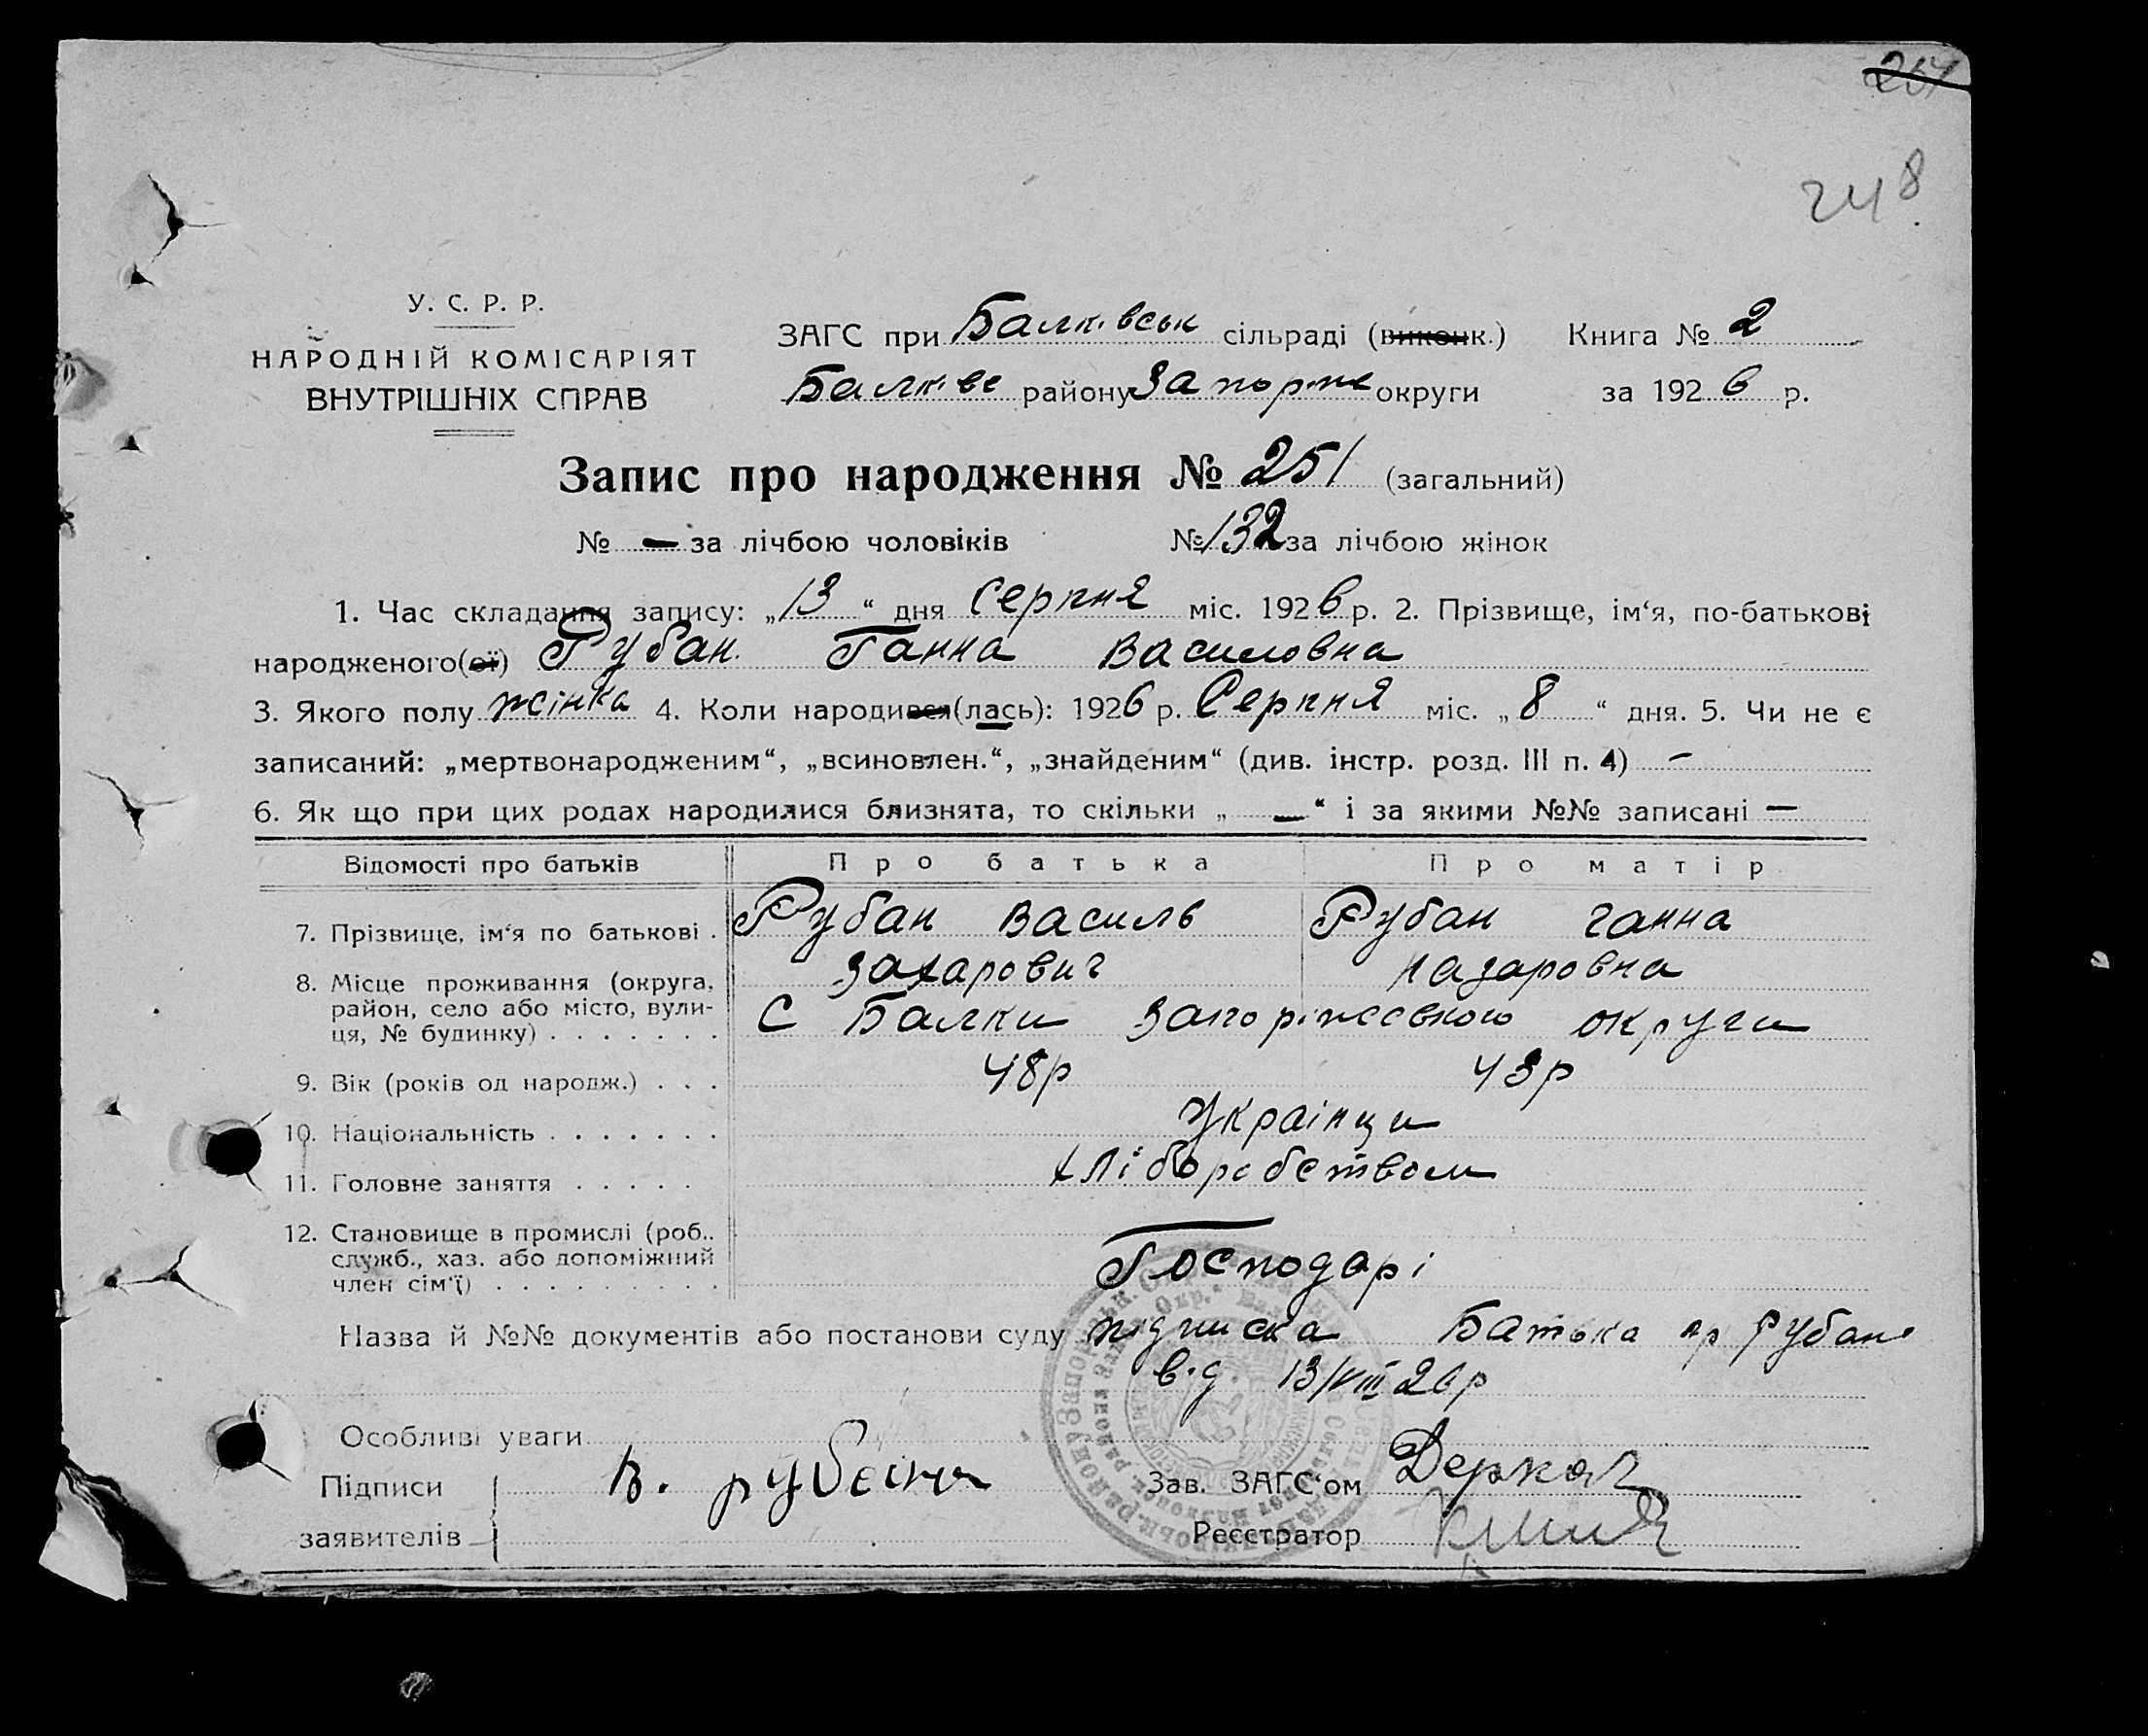 204
248
У. С. Р. Р.
НАРОДНІЙ КОМІСАРІЯТ
ВНУТРІШНІХ СПРАВ
ЗАГС при Балківськ сільраді (виконк.) Книга № 2
Балківс району Запоріже округи за 1926 р.
Запис про народження № 251 (загальний)
№ — за лічбою чоловіків № 132 за лічбою жінок
1. Час складання запису: „13“ дня Серпня міс. 1926 р. 2. Прізвище, ім‘я, по-батькові
народженого(ої) Рубан Ганна Василовна
3. Якого полу жінка 4. Коли народився(лась): 1926 р. Серпня міс. „8“ дня. 5. Чи не є
записаний: „мертвонародженим“, „всиновлен.“, „знайденим“ (див. інстр. розд. III п. 4) —
6. Як що при цих родах народилися близнята, то скільки „—“ і за якими №№ записані —
Відомості про батьків Про батька Про матір
7. Прізвище, ім‘я по батькові . Рубан Василь Рубан Ганна
Захарович Назаровна
8. Місце проживання (округа,
район, село або місто, вули-
ця, № будинку) . . . . . . . С Балки Запоріжсвкого округи
9. Вік (років од народж.) . . . 48р 43р
10. Національність . . . . . . . Українци
11. Головне заняття . . . . . хліборобством
12. Становище в промислі (роб.,
служб., хаз. або допоміжний
член сім‘ї) . . . . . . . . . Господарі
Назва й №№ документів або постанови суду підписка Батька гр Рубана
від 13/VIII 26р
Особливі уваги
Підписи заявителів В. рубанъ
Зав. ЗАГС‘ом Деркач
Реєстратор